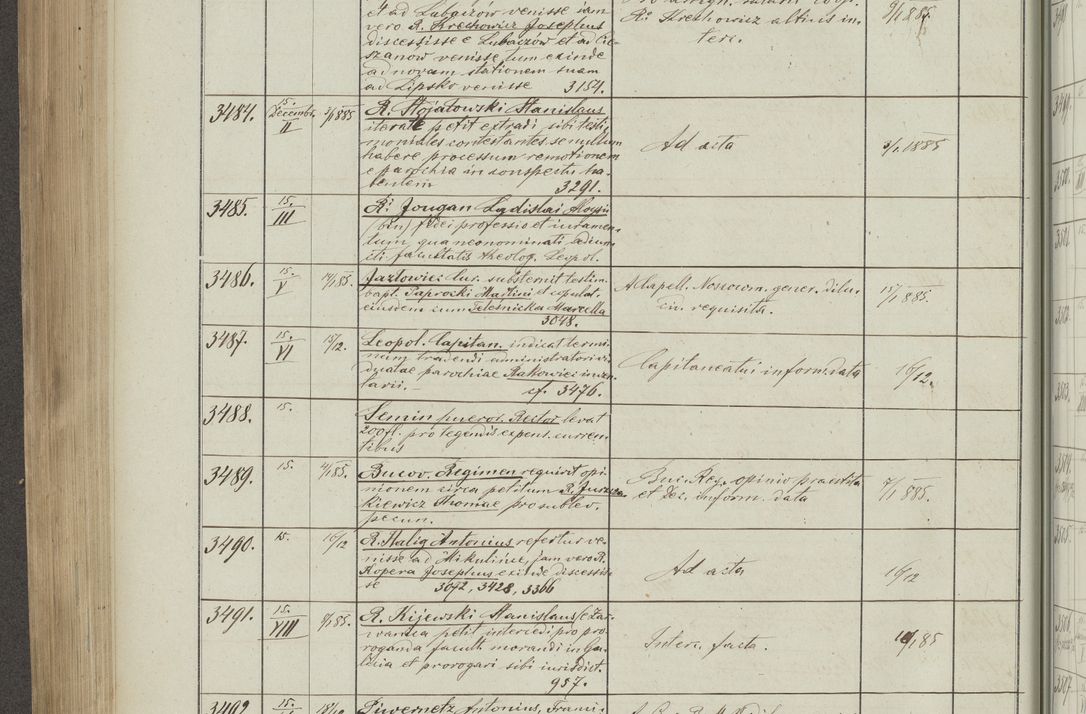 et ad Lubaczów venisse jam
vero R. Krechowicz Josephus
discessisse e Lubaczów et ad Cie-
szanów venisse, tum exinde
ad novam stationem suam
ad Lipsko venisse 3154.
Ri Krechowicz
tere.
3484. 15. Decembr. II R. Stojałowski Stanislaus
iterate petit extradi sibi testi-
moniales contestantes se nullum
habere processum remotionem
e parochia in conspectu ha-
bentem 3291.
Ad acta
3/1 1885
3485. 15. III R. Jougan Ladislai, Aloysii
(bin) fidei professio et juramen-
tum, qua neonominati adjun-
cti facultatis theolog. Leopol.
3486. 15. V 14/1 85. Jazłowiec lur. substernit testim.
bapt. Paprocki Martini et copulat.
ejusdem cum Teleśnicka Marcella
3048.
A Capell. Nosocom. gener.
requisita.
15/1 885.
3487. 15. VI 15/12. Leopol. Capitan. indicat termi-
num tradendi administratori vi-
duatae parochiae Rakowiec inven-
tarii. cf. 3476.
Capitaneatui inform. data
16/12.
3488. 15. Semin. pueror. Rector levat
200 fl. pro tegendis expens. curren-
tibus
3489. 15. Bucov. Regimen requirit opi-
nionem circa petitum R. Jurasz-
kiewicz Thomae pro sublev.
pecun.
Buc. Reg. opinio praestita
et inform. data
7/1 885.
3490. 15. 16/12 R. Halig Antonius refertur ve-
nisse ad Mikulińce, jam vero R.
Kopera Josephus exinde discessis-
se 3072, 3428, 3366
Ad acta
16/12
3491. 15. VIII 8/1 85. R. Kijewski Stanislaus e Żar-
wanica petit intercedi pro pro-
roganda facult. morandi in Ga-
licia et prorogari sibi jurisdict.
957.
Interc. facta.
3492. 15. 18/12 Piwernetz Antonius, Franci-